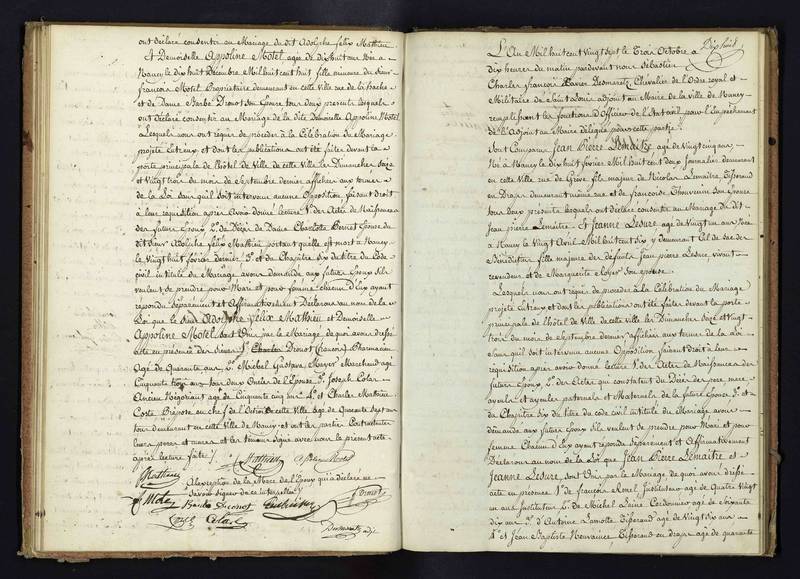 ont déclaré consentir au Mariage du dit Adolphe félix Mathieu
Et Demoiselle Appoline Motel agée de dix huit ans Née à
Nancy le dix huit Décembre Mil huit cent huit fille mineure du Sieur
françois Motel Propriétaire demeurant en cette Ville rue de la hache
et de Dame Barbe Drouot son Epouse tous deux présents lesquels
ont déclaré consentir au Mariage de la dite Demoiselle Appoline Motel
Lesquels nous ont requis de procéder à la Célébration du Mariage
projeté Entr'eux et dont les publications ont été faites devant la
porte principale de l'hôtel de Ville de cette Ville les Dimanches seize
et Vingt trois du mois de Septembre dernier affichées aux termes
de la Loi sans qu'il soit intervenu aucune Opposition, faisant droit
à leur réquisition après avoir donné lecture 1° des Actes de Naissance
des futurs Epoux 2° du Décès de Dame Charlotte Epouse du
dit Sieur Adolphe félix Mathieu portant quelle est morte à Nancy
le Vingt huit février Dernier 3° et du Chapitre Six du titre du Code
civil intitulé du Mariage avons demandé aux futurs Epoux s'ils
veulent se prendre pour Mari et pour femme chacun d'Eux ayant
répondu Séparément et Affirmativement Déclarons au nom de la
Loi que le Sieur Adolphe Félix Mathieu et Demoiselle
Appoline Motel sont Unis par le Mariage de quoi avons dressé
acte en présence des Sieurs 1° Drouot (françois) Pharmacien
Agé de quarante ans 2° Michel Gustave Meyer Marchand agé
Cinquante trois ans tous deux Oncles de l'Epouse 3° Joseph Colas
Ancien Négociant agé de Cinquante cinq ans 4° et Charles Mathieu
Coste Préposé en chef de l'Octroi de cette Ville agé de Quarante sept ans
tous demeurant en cette Ville de Nancy et ont les parties Contractantes
leurs pères et mères et les témoins Signé avec nous le présent acte
après lecture faite
Mathieu
Mathieu
A l'exception de la Mère de l'Epoux qui a déclaré ne
savoir signer de ce interpellée
Motel
Drouot
Colas
Desmaretz
L'An Mil huit cent Vingt sept le Trois Octobre à
Dix heures du matin pardevant nous Sébastien
Charles françois Xavier Desmaretz Chevalier de l'Ordre royal et
Militaire de Saint Louis adjoint au Maire de la ville de Nancy
remplissant les fonctions d'Officier de l'Etat civil pour l'Empêchement
de l'Adjoint au Maire délégué pour cette partie
Sont Comparus Jean Pierre Lemaitre agé de Vingt cinq ans
Né à Nancy le dix huit février Mil huit cent deux Journalier demeurant
en cette Ville rue de Grève fils majeur de Nicolas Lemaitre, Tisserand
en Draps demeurant même rue et de françoise Chouvenin son Epouse
tous deux présents lesquels ont déclaré consentir au Mariage du dit
Jean pierre Lemaitre Et Jeanne Lesure agée de Vingt un ans Née
à Nancy le Vingt Avril Mil huit cent six y demeurant Cul de sac des
Bénédictins fille majeure des défunts Jean pierre Lesure, vivant
revendeur et de Marguerite son épouse.
Lesquels nous ont requis de procéder à la Célébration du Mariage
projeté Entr'eux et dont les publications ont été faites devant la porte
principale de l'hôtel de Ville de cette Ville les Dimanches seize et vingt
trois du mois de Septembre dernier affichées aux termes de la Loi
Sans qu'il soit intervenu aucune Opposition faisant droit à leur
réquisition après avoir donné lecture 1° des Actes de Naissance des
futurs Epoux, 2° des Actes qui constatent du Décès des père, mère
ayeuls et ayeules paternels et Maternels de la future Epouse 3° et
du Chapitre Six du titre du code civil intitulé du Mariage avons
demandé aux futurs Epoux s'ils veulent se prendre pour Mari et pour
femme Chacun d'Eux ayant répondu Séparément et Affirmativement
Déclarons au nom de la Loi que Jean Pierre Lemaitre et
Jeanne Lesure, sont Unis par le Mariage de quoi avons dressé
acte en présence 1° de françois Instituteur agé de Quatre Vingt
un ans Instituteur 2° de Michel Laine Cordonnier agé de Soixante
dix ans 3° d'Antoine Lamotte Tisserand agé de Vingt dix ans
4° et Jean Baptiste Tisserand en draps agé de quarante